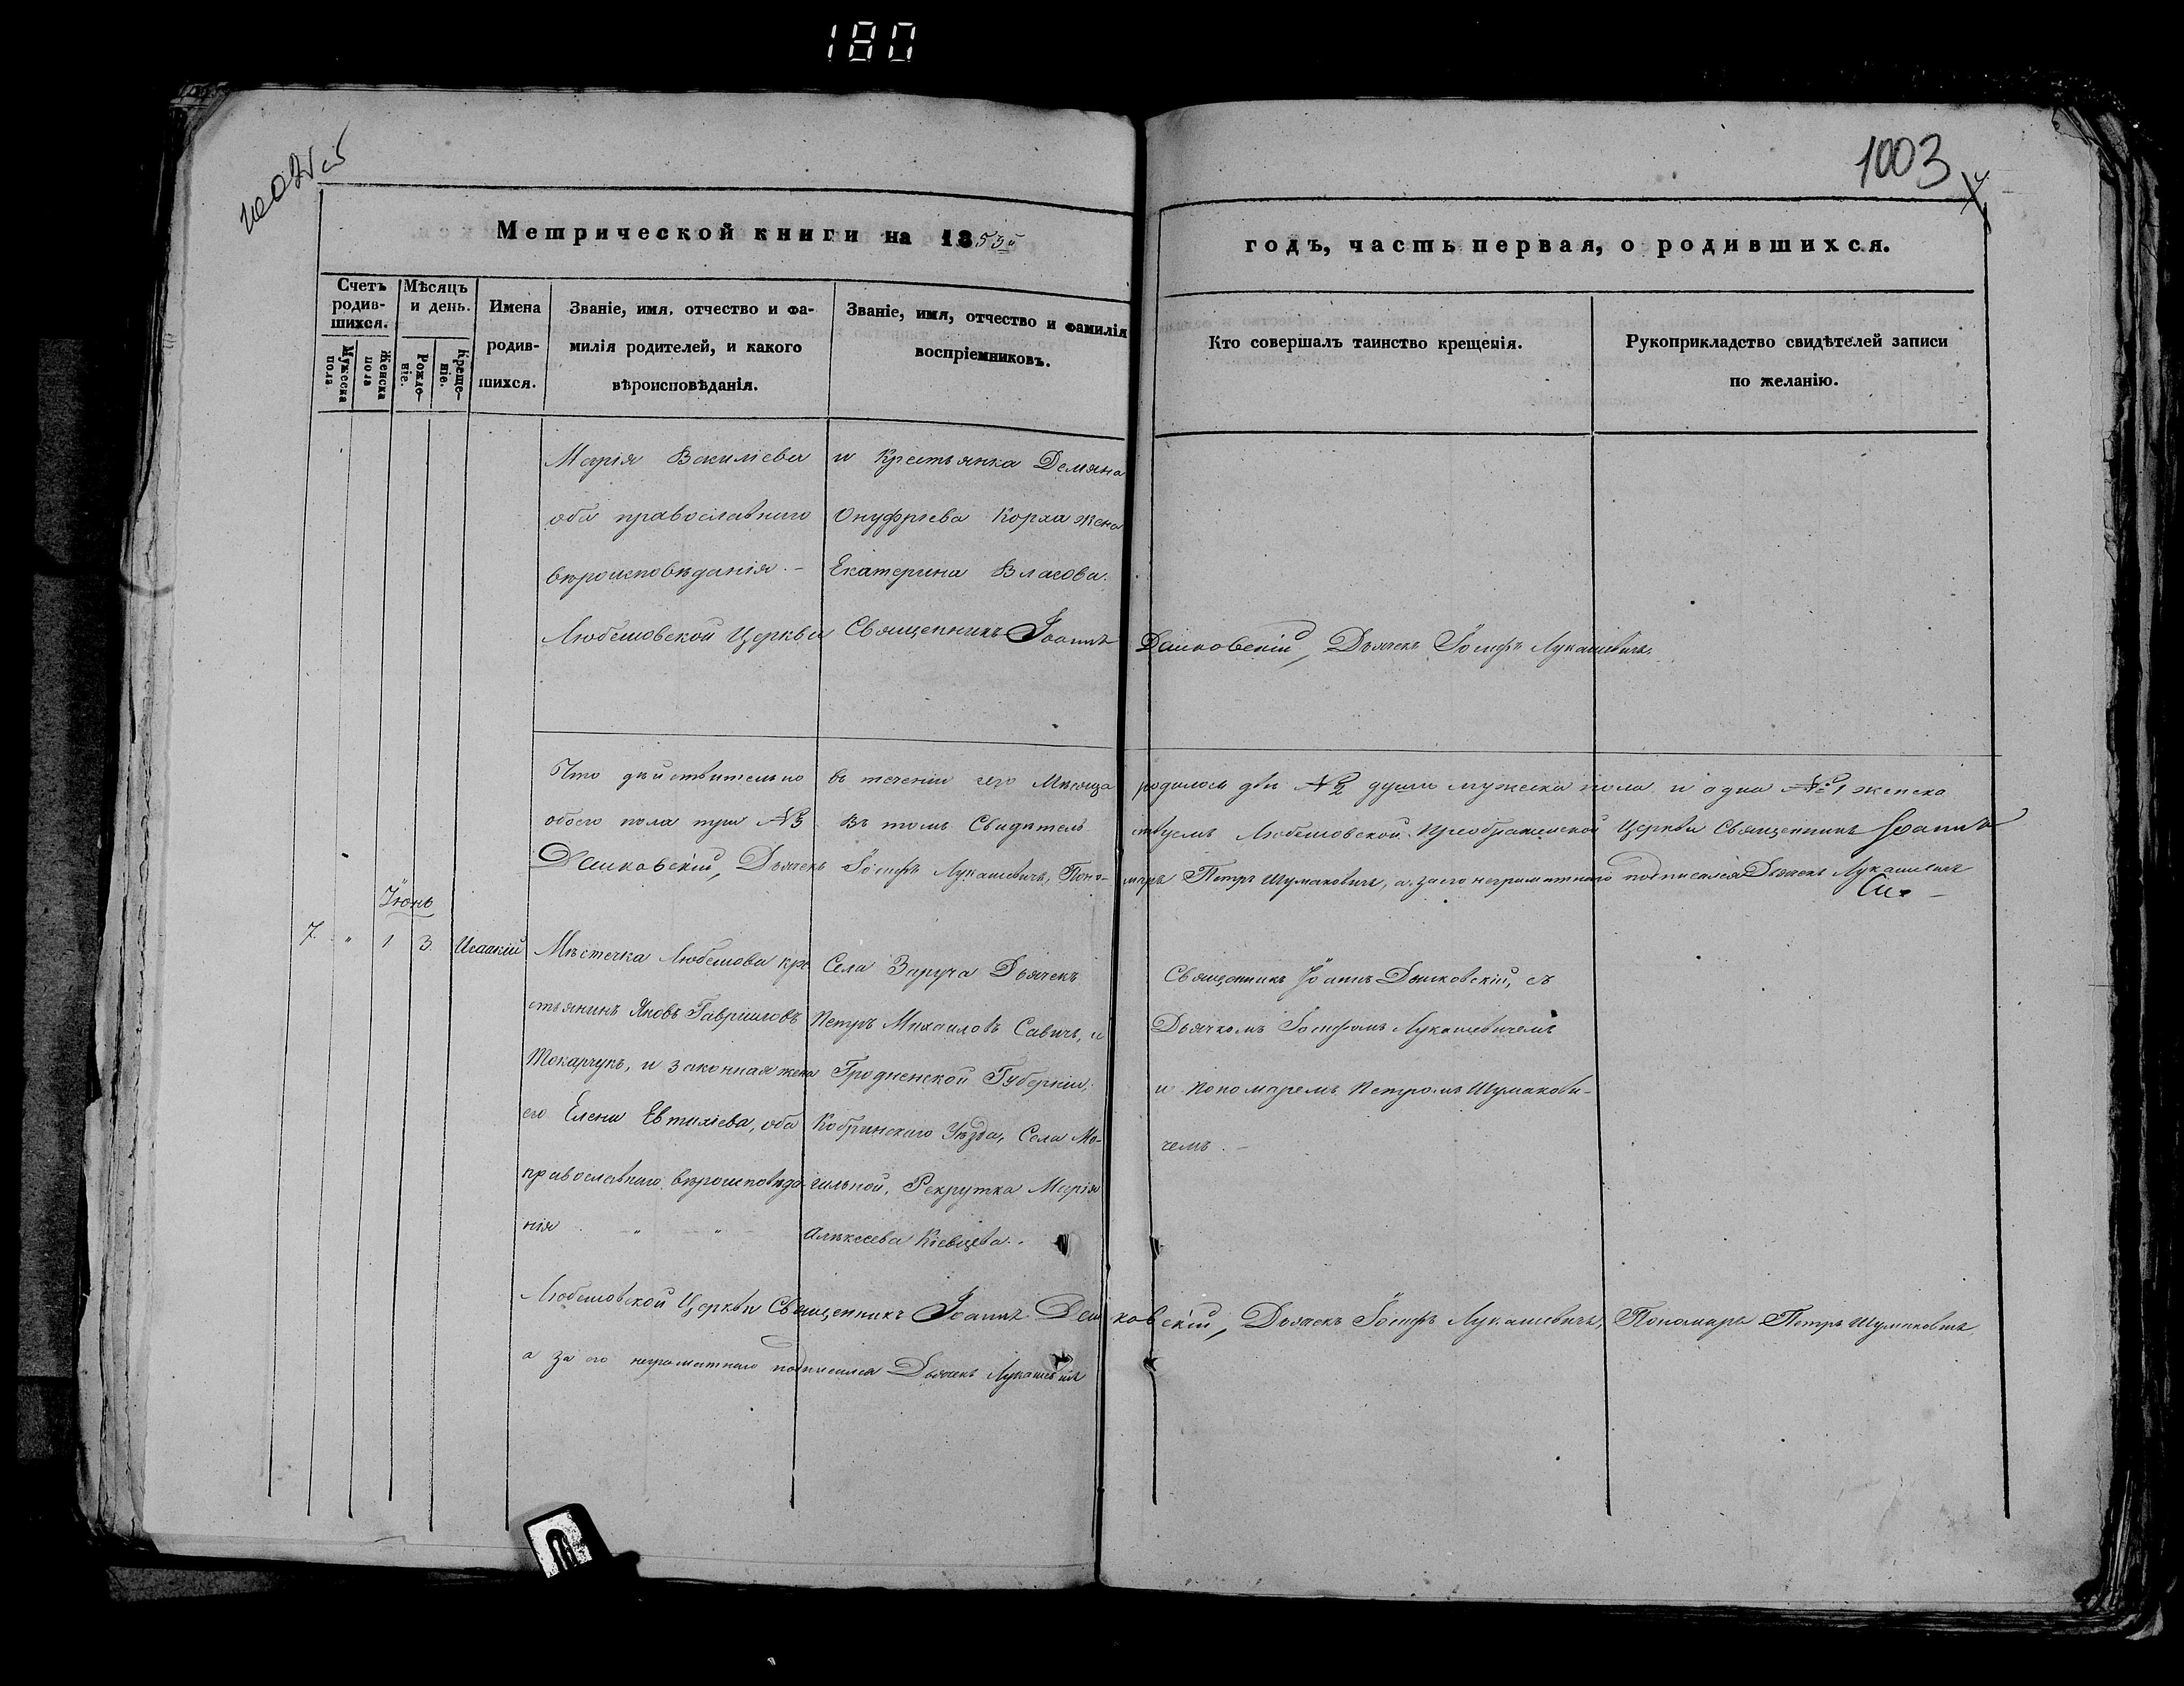 180
1003
Метрической книги на 1853й
годъ, часть первая, о родившихся.
Счетъ родив-шихся.
Мужеска пола
Женска пола
Мѣсяцъ и день.
Рожде-ніе.
Креще-ніе.
Имена родив-шихся.
Званіе, имя, отчество и фа-
милія родителей, и какого
вѣроисповѣданія.
Званіе, имя, отчество и фамилія
воспріемниковъ.
Кто совершалъ таинство крещенія.
Рукоприкладство свидѣтелей записи
по желанію.
Марія Василіева
оба православнаго
вѣроисповѣданія. –
и Крестьянка Демяна
Онуфріева Корха жена
Екатерина Власова.
Любешовской Церкви Священникъ Іоаннъ Дашковскій, Дьячекъ Іосифъ Лукашевичъ.
Что дѣйствительно въ теченіи сего Мѣсяца родилось двѣ №2 души мужеска пола и одна №1 женска
обоего пола три №3. Въ томъ Свидѣтельствуемъ Любешовской Преображенской Церкви Священникъ Іоаннъ
Дашковскій, Дьячекъ Іосифъ Лукашевичъ, Поно-марь Петръ Шумаковичъ, а за его неграмотнаго подписался Дьячекъ Лукашевичъ
Іюнь
7. " 1 3. Исаакій
Мѣстечка Любешова кре
стьянинъ Яковъ Гавріиловъ
Токарчукъ, и законная жена
его Елена Евтихіева, оба
православнаго вѣроисповѣда
нія " "
Села Заруча Дьячекъ
Петръ Михаиловъ Савичъ, и
Гродненской Губерніи,
Кобринскаго Уѣзда, Села Мо-
гильной, Рекрутка Марія
Алексеева Кіевцева.
Священникъ Іоаннъ Дашковскій, съ
Дьячкомъ Іосифомъ Лукашевичемъ
и Пономаремъ Петромъ Шумакови-
чемъ. –
Любешовской Церкви Священникъ Іоаннъ Дашковскій, Дьячекъ Іосифъ Лукашевичъ, Пономарь Петръ Шумаковичъ
а за его неграмотнаго подписался Дьячекъ Лукашевичъ